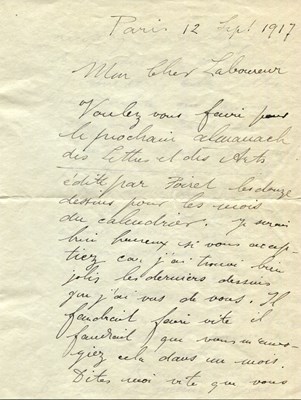 Paris 12 Sept 1917
Mon Cher Laboureur
Voulez vous faire pour
le prochain almanach
des Lettres et des Arts
édité par Poiret les douze
dessins pour les mois
du calendrier. Je serai
bien heureux si vous accep-
tiez car j'ai trouvé bien
jolis les derniers dessins
que j'ai vus de vous. Il
faudrait faire vite il
faudrait que vous m'
cela dans un mois.
Dites moi vite que vous